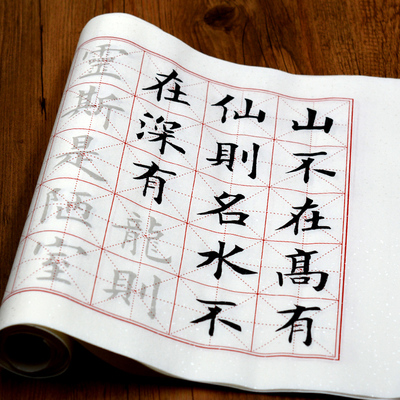 山不在髙有
仙則名水不
在深有龍則
霊斯是陋室